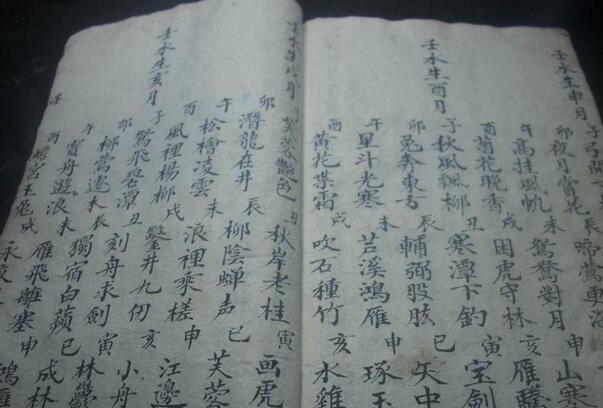 壬水生申月 子弓開下
卯夜月賞花 辰啼鶯
午高挂風帆 未鴛鴦對月 申山寒
酉菊花晚香 戌困虎守林 亥雁
壬水生酉月 子秋風飄柳 丑寒潭下釣 寅宝劍
卯兔奔東方 辰輔弼股肱 巳矢中
午星斗光寒 未苕溪鴻雁 申琢玉
酉黄花霜 戌吹石種竹 亥水雞
壬水生戌月 子芙蓉艷色 丑秋岸老桂 寅画虎
卯潛龍在井 辰柳陰蟬声 巳芙蓉
午松檜凌雲 未浪裡乘槎 申江邊
酉風裡楊柳 戌鑿井九仞 亥小舟
壬水生亥月 子鴛飛碧潭 丑刻舟求劍 寅林
卯柳營 獨宿白蘋 巳成林
午賞舟遊浪 未雁飛離塞 申鴻雁
壬 酉宮玉兔 戌